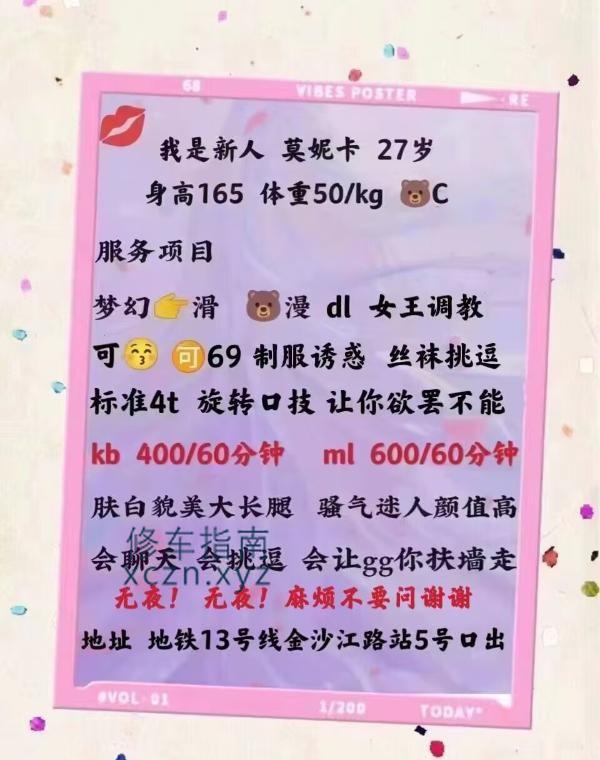 68 VIBES POSTER RE
我是新人 莫妮卡 27岁
身高165 体重50/kg 🐻C
服务项目
梦幻👉滑 🐻漫 dl 女王调教
可😚 🉑69 制服诱惑 丝袜挑逗
标准4t 旋转口技 让你欲罢不能
kb 400/60分钟 ml 600/60分钟
肤白貌美大长腿 骚气迷人颜值高
修车指南
会聊天 会挑逗 会让gg你扶墙走
xczn.xyz
无夜! 无夜! 麻烦不要问谢谢
地址 地铁13号线金沙江路站5号口出
#VOL-01 1/200 TODAY*